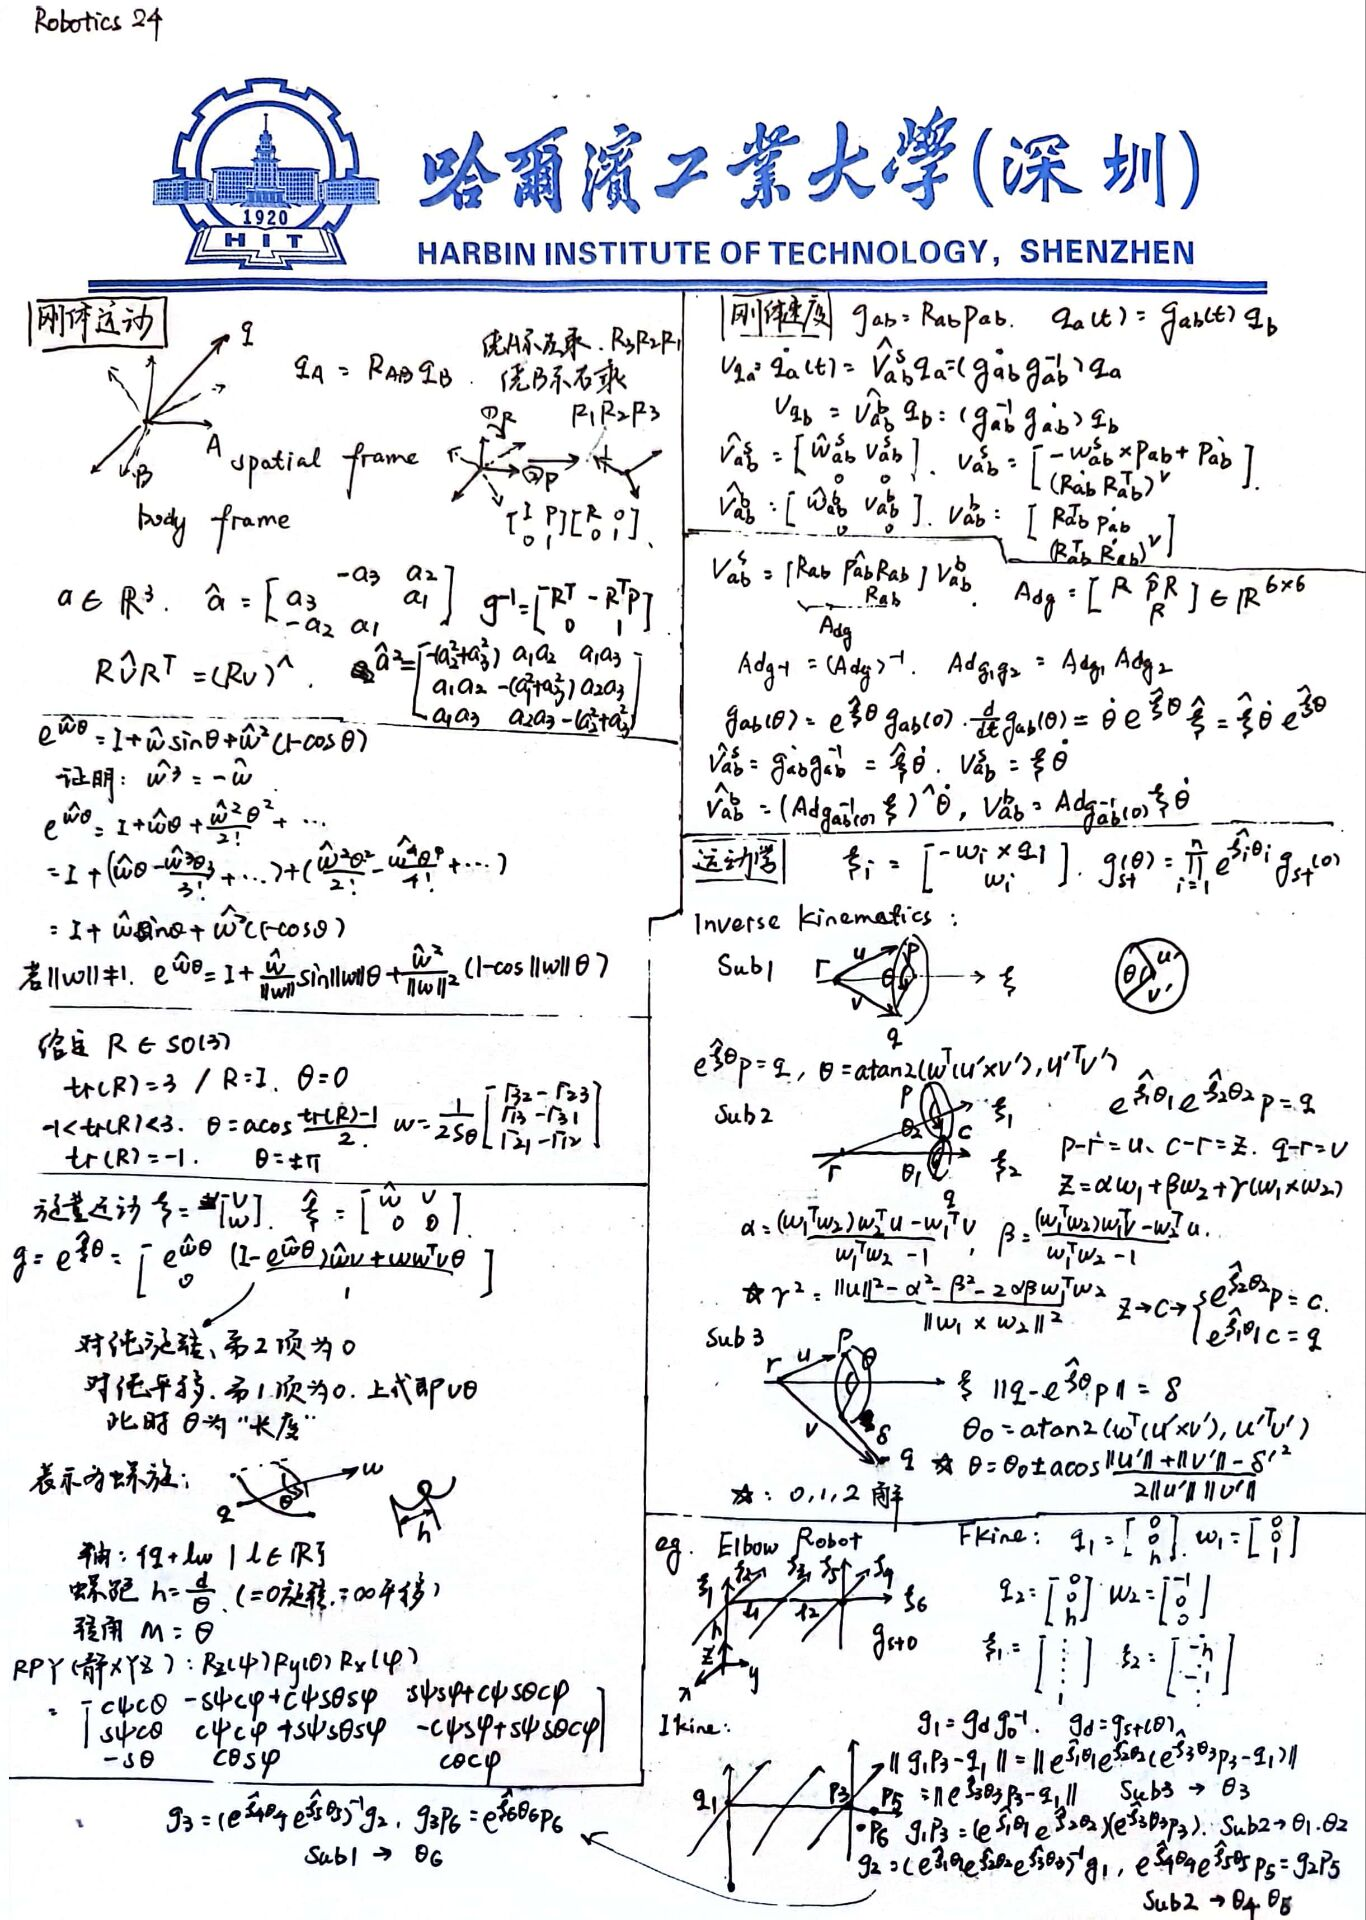 Robotics 24
哈爾濱工業大學(深圳)
1920
HIT
HARBIN INSTITUTE OF TECHNOLOGY, SHENZHEN
刚体运动
q
A
B
q_A = R_AB q_B.
绕A系左乘. R3R2R1
绕B系右乘
R1R2R3
spatial frame
body frame
①R
②P
[I P; 0 1][R 0; 0 1].
a ∈ ℝ³. â = [ -a3 a2; a3 a1; -a2 a1 ] g⁻¹ = [Rᵀ -RᵀP; 0 1]
R v̂ Rᵀ = (Rv)^. â² = [-(a2²+a3²) a1a2 a1a3; a1a2 -(a1²+a3²) a2a3; a1a3 a2a3 -(a2²+a3²)]
e^ŵθ = I + ŵ sinθ + ŵ²(1-cosθ)
证明: ŵ³ = -ŵ
e^ŵθ = I + ŵθ + ŵ²θ²/2! + ...
= I + (ŵθ - ŵ³θ³/3! + ...) + (ŵ²θ²/2! - ŵ⁴θ⁴/4! + ...)
= I + ŵ sinθ + ŵ²(1-cosθ)
若||w|| ≠ 1. e^ŵθ = I + ŵ/||w|| sin||w||θ + ŵ²/||w||² (1-cos||w||θ)
给定 R ∈ SO(3)
tr(R) = 3 / R = I. θ = 0
-1 < tr(R) < 3. θ = acos (tr(R)-1)/2. w = 1/2Sθ [r32 - r23; r13 - r31; r21 - r12]
tr(R) = -1. θ = ±π
旋量运动 ξ = [v; w]. ξ̂ = [ŵ v; 0 0].
g = e^ξ̂θ = [e^ŵθ (I-e^ŵθ)ŵv + wwᵀvθ; 0 1]
对纯旋转、第2项为0
对纯平移. 第1项为0. 上式即vθ
此时 θ为"长度"
表示为螺旋:
q θ w h
轴: {q + lw | l ∈ ℝ}
螺距 h = d/θ. (=0旋转, =∞平移)
转角 M = θ
RPY (静XYZ): Rz(ψ) Ry(θ) Rx(φ)
= [cψcθ -sψcφ+cψsθsφ sψsφ+cψsθcφ
sψcθ cψcφ+sψsθsφ -cψsφ+sψsθcφ
-sθ cθsφ cθcφ]
g3 = (e^ξ̂4θ4 e^ξ̂5θ5)⁻¹ g2, g3P6 = e^ξ̂6θ6 P6
Sub1 → θ6
刚体速度 g_ab = R_ab P_ab. q_a(t) = g_ab(t) q_b
v_qa = q̇_a(t) = V̂ˢ_ab q_a = (ġ_ab g⁻¹_ab) q_a
v_qb = V̂ᵇ_ab q_b = (g⁻¹_ab ġ_ab) q_b
V̂ˢ_ab = [ŵˢ_ab vˢ_ab; 0 0]. Vˢ_ab = [-wˢ_ab × P_ab + Ṗ_ab; (Ṙ_ab Rᵀ_ab)ᵛ].
V̂ᵇ_ab = [ŵᵇ_ab vᵇ_ab; 0 0]. Vᵇ_ab = [Rᵀ_ab Ṗ_ab; (Rᵀ_ab Ṙ_ab)ᵛ]
Vˢ_ab = [R_ab P̂_ab R_ab; R_ab] Vᵇ_ab. Ad_g = [R P̂R; R] ∈ ℝ^6×6
Ad_g
Ad_g⁻¹ = (Ad_g)⁻¹. Ad_g1g2 = Ad_g1 Ad_g2
g_ab(θ) = e^ξ̂θ g_ab(0). d/dt g_ab(θ) = θ̇ e^ξ̂θ ξ̂ = ξ̂ θ̇ e^ξ̂θ
V̂ˢ_ab = ġ_ab g⁻¹_ab = ξ̂θ̇. Vˢ_ab = ξθ̇
V̂ᵇ_ab = (Ad_g⁻¹_ab(0) ξ)^ θ̇, Vᵇ_ab = Ad_g⁻¹_ab(0) ξθ̇
运动学 ξi = [-wi × qi; wi]. g_st(θ) = ∏ⁿᵢ₌₁ e^ξ̂iθi g_st(0)
Inverse Kinematics:
Sub1
r u v p θ q ξ
θ u' v'
e^ξ̂θ p = q, θ = atan2(wᵀ(u'×v'), u'ᵀv')
Sub2
p ξ1 θ2 c r θ1 ξ2 q
e^ξ̂1θ1 e^ξ̂2θ2 p = q
p-r = u、c-r = z. q-r = v
z = αw1 + βw2 + γ(w1×w2)
α = ((w1ᵀw2)w2ᵀu - w1ᵀv)/(w1ᵀw2 - 1), β = ((w1ᵀw2)w1ᵀv - w2ᵀu)/(w1ᵀw2 - 1).
☆ γ² = (||u||² - α² - β² - 2αβw1ᵀw2)/||w1 × w2||² z → c → {e^ξ̂2θ2 p = c. e^ξ̂1θ1 c = q
Sub3
r u p θ v δ q ξ
||q - e^ξ̂θ p|| = δ
θ0 = atan2(wᵀ(u'×v'), u'ᵀv')
☆ θ = θ0 ± acos (||u'|| + ||v'|| - δ'²)/(2||u'|| ||v'||)
☆: 0,1,2 解
eg. Elbow Robot
ξ1 ξ2 ξ3 ξ5 ξ4 ξ6
l1 l2 h
z y x
g_st0
Fkine: q1 = [0; 0; h]. w1 = [0; 0; 1]
q2 = [0; 0; h] w2 = [-1; 0; 0]
ξ1 = [ ⋮ 1 ] ξ2 = [ -h -1 ⋮ ]
Ikine:
g1 = gd g0⁻¹. gd = g_st(θ)
q1 P3 P5 P6
||g1P3 - q1|| = ||e^ξ̂1θ1 e^ξ̂2θ2 (e^ξ̂3θ3 P3 - q1)||
= ||e^ξ̂3θ3 P3 - q1|| Sub3 → θ3
g1P3 = (e^ξ̂1θ1 e^ξ̂2θ2)(e^ξ̂3θ3 P3). Sub2 → θ1.θ2
g2 = (e^ξ̂1θ1 e^ξ̂2θ2 e^ξ̂3θ3)⁻¹ g1, e^ξ̂4θ4 e^ξ̂5θ5 P5 = g2P5
Sub2 → θ4 θ5